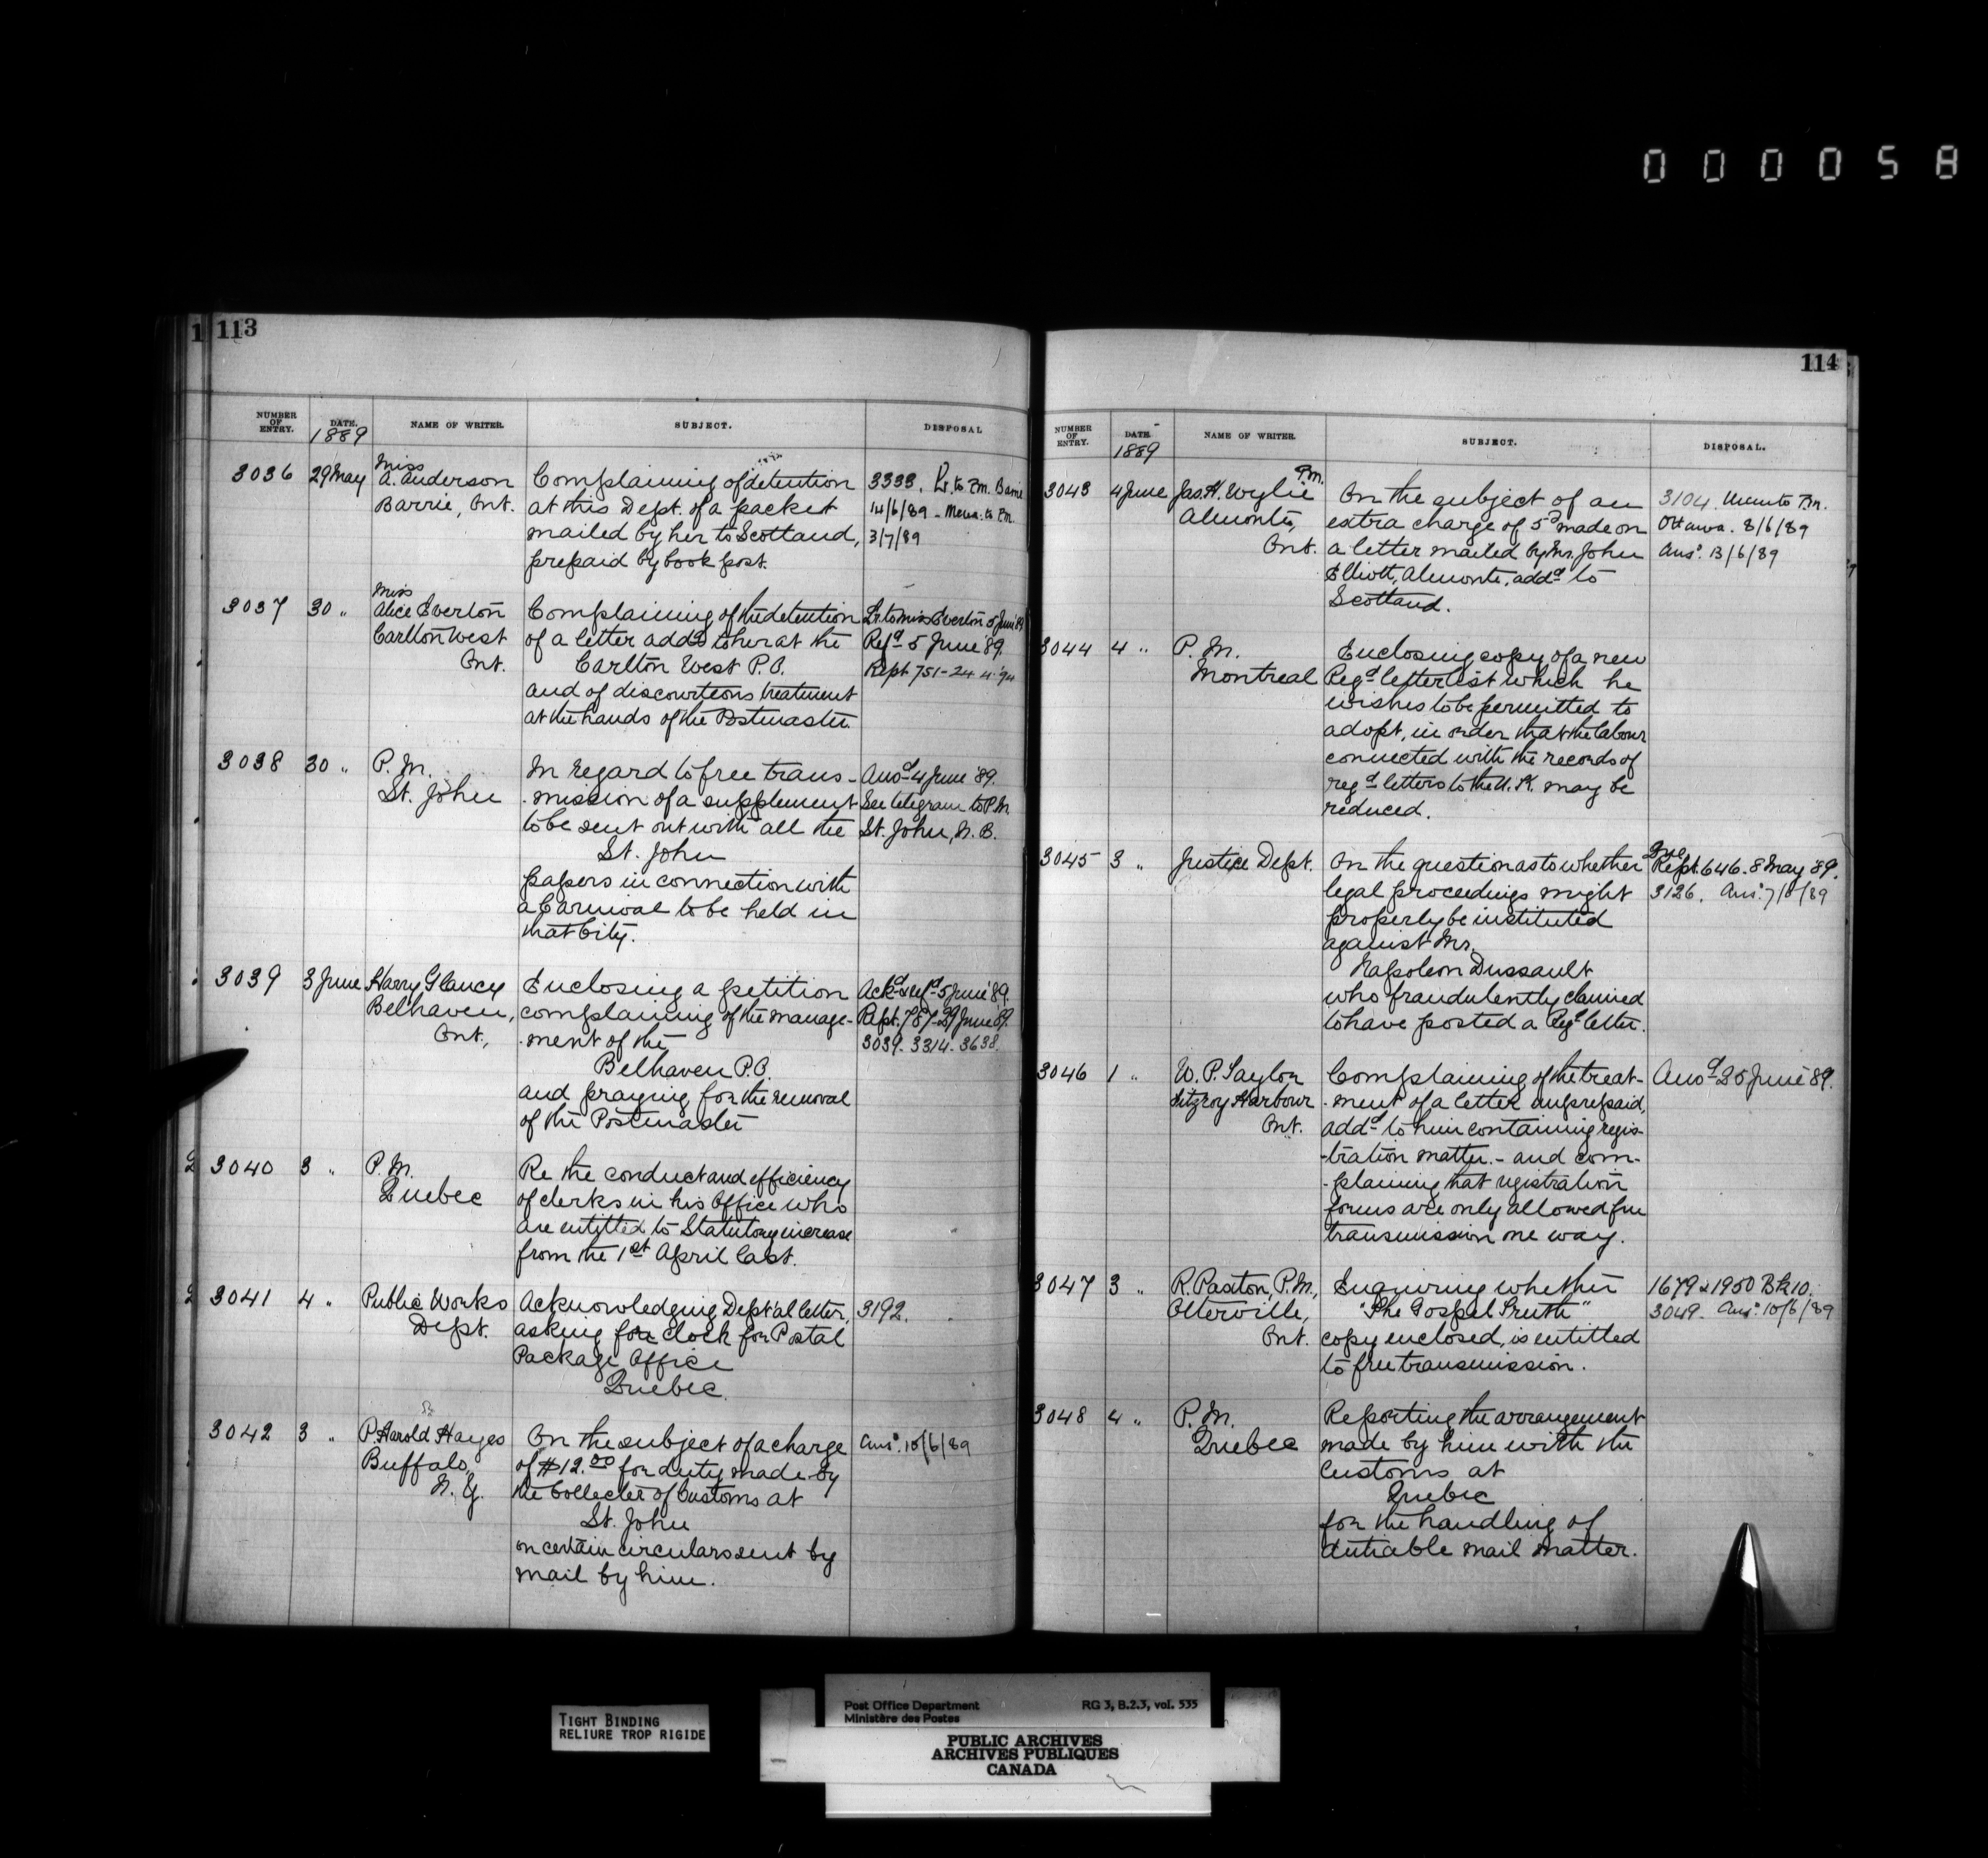 000058
113
NUMBER OF ENTRY. DATE. 1889 NAME OF WRITER. SUBJECT. DISPOSAL
3036 29 May Miss A. Anderson Complaining of detention 3333. Lr. to P.M. Barrie
Barrie, Ont. at this Dept. of a packet 14/6/89 - Memo. to P.M.
mailed by her to Scotland, 3/7/89
prepaid by book post.
3037 30 " Miss Alice Everton Complaining of the detention Lr to Miss Everton 5 June '89
Carlton West of a letter addd to her at the Refd 5 June '89.
Ont. Carlton West P.O. Rept 751-24.4.'94
and of discourteous treatment
at the hands of the Postmaster.
3038 30 " P.M. In regard to free trans- Ansd 4 June '89.
St. John -mission of a supplement See telegram to P.M.
to be sent out with all the St. John, N.B.
St. John
papers in connection with
a Carnival to be held in
that City.
3039 3 June Harry Glancy Enclosing a petition Ackd & refd 5 June '89.
Belhaven, complaining of the manage- Rept. 787-29 June '89.
Ont., -ment of the 3039. 3314. 3638.
Belhaven P.O.
and praying for the removal
of the Postmaster
3040 3 " P.M. Re the conduct and efficiency
Quebec of clerks in his Office who
are entitled to Statutory increase
from the 1st April last.
3041 4 " Public Works Acknowledging Dept'al letter, 3192.
Dept. asking for clock for Postal
Package Office
Quebec.
3042 3 " P. Harold Hayes On the subject of a charge Ansd. 10/6/89
Buffalo, of $12.00 for duty made by
N.Y. the Collector of Customs at
St. John
on certain circulars sent by
mail by him.
114
NUMBER OF ENTRY. DATE. 1889 NAME OF WRITER. SUBJECT. DISPOSAL.
3043 4 June Jas. H. Wylie P.M. On the subject of an 3104. Memo to P.M.
Almonte, extra charge of 5c made on Ottawa. 8/6/89
Ont. a letter mailed by Mr. John Ansd. 13/6/89
Elliott, Almonte, addd to
Scotland.
3044 4 " P.M. Enclosing copy of a new
Montreal Regd letter list which he
wishes to be permitted to
adopt, in order that the labour
connected with the records of
regd letters to the U.K. may be
reduced.
3045 3 " Justice Dept. On the question as to whether Rept. 646. 8 May '89.
legal proceedings might 3126. Ansd.
properly be instituted
against Mr.
Napoleon Dussault
who fraudulently claimed
to have posted a Regd letter.
3046 1 " W. P. Taylor Complaining of the treat- Ansd 25 June '89.
Fitzroy Harbour -ment of a letter unprepaid,
Ont. addd to him containing regis-
-tration matter. - and com-
-plaining that registration
forms are only allowed free
transmission one way.
3047 3 " R. Paxton, P.M., Enquiring whether 1679 & 1950 Bk 10.
Otterville, "The Gospel Truth" 3049. Ansd. 10/6/89
Ont. copy enclosed, is entitled
to free transmission.
3048 4 " P.M. Reporting the arrangement
Quebec made by him with the
Customs at
Quebec
for the handling of
dutiable mail matter.
TIGHT BINDING
RELIURE TROP RIGIDE
Post Office Department RG 3, B.2.3, vol. 535
Ministère des Postes
PUBLIC ARCHIVES
ARCHIVES PUBLIQUES
CANADA